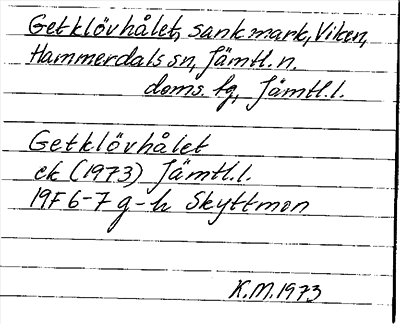 Getklövhålet, sankmark, Viken,
Hammerdals sn, Jämtl. n.
doms. tg, Jämtl. l.
Getklövhålet
ek (1973) Jämtl. l.
19F 6-7 g-h Skyttmon
K.M. 1973